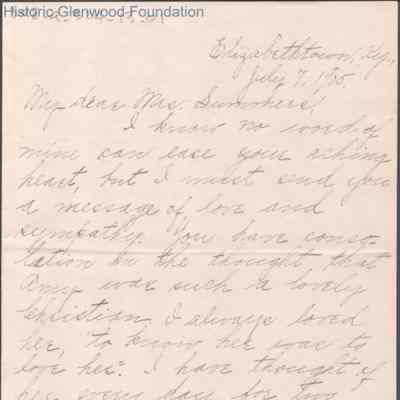 Historic Glenwood Foundation
Elizabethtown, Ky.,
July 7, '05.
My dear Mrs. Summers!
I know no word of
mine can ease your aching
heart, but I must send you
a message of love and
sympathy. You have conso-
lation in the thought that
Amy was such a lovely
Christian. I always loved
her, "to know her was to
love her". I have thought of
her every day for two